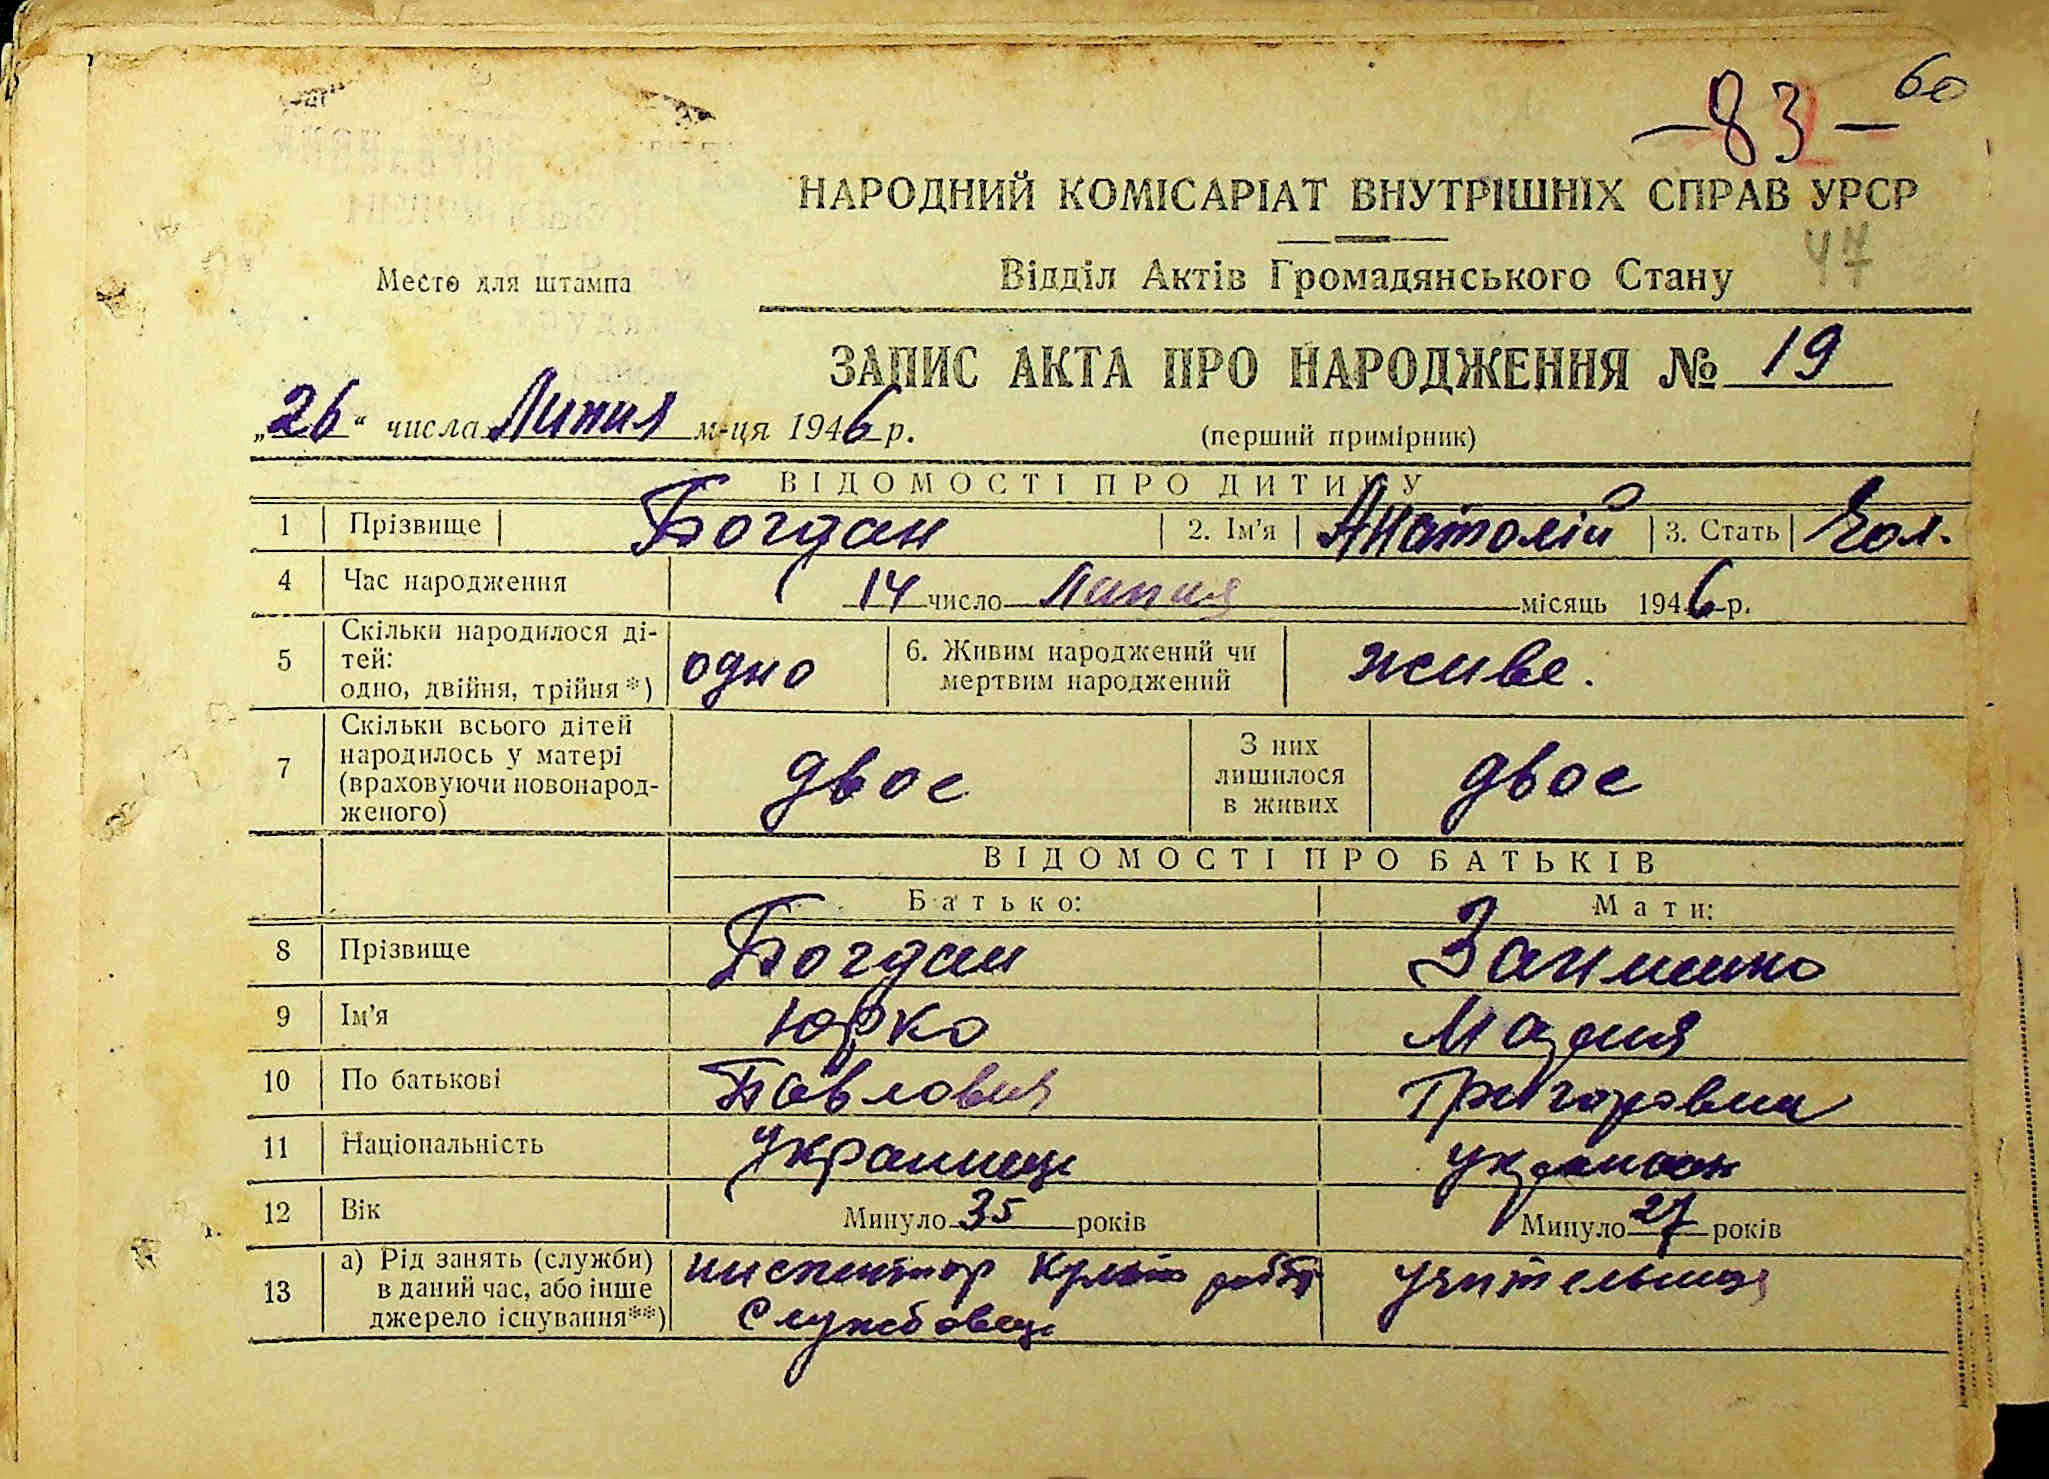 60
— 83 —
НАРОДНИЙ КОМІСАРІАТ ВНУТРІШНІХ СПРАВ УРСР
Место для штампа
Відділ Актів Громадянського Стану
ЗАПИС АКТА ПРО НАРОДЖЕННЯ № 19
„26“ числа Липня м-ця 1946 р.
(перший примірник)
ВІДОМОСТІ ПРО ДИТИНУ
1 Прізвище Богдан 2. Ім'я Анатолій 3. Стать Чол.
4 Час народження 14 число Липня місяць 1946 р.
5 Скільки народилося ді-
тей:
одно, двійня, трійня*) одно 6. Живим народжений чи
мертвим народжений живе.
7 Скільки всього дітей
народилось у матері
(враховуючи новонарод-
женого) двоє З них
лишилося
в живих двоє
ВІДОМОСТІ ПРО БАТЬКІВ
Батько: Мати:
8 Прізвище Богдан
9 Ім'я Юрко Мария
10 По батькові Павлович Григоровна
11 Національність Українець
12 Вік Минуло 35 років Минуло 27 років
13 а) Рід занять (служби)
в даний час, або інше
джерело існування**) инспектор
Службовець учителька